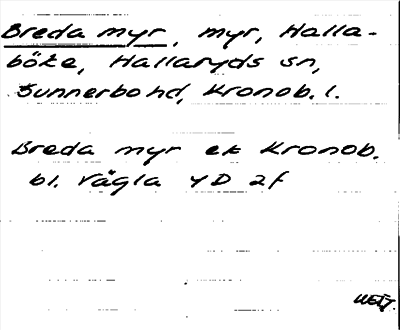 Breda myr, myr, Halla-
böke, Hallaryds sn,
Sunnerbo hd, Kronob. l.
Breda myr ek Kronob.
bl. Vägla YD 2f